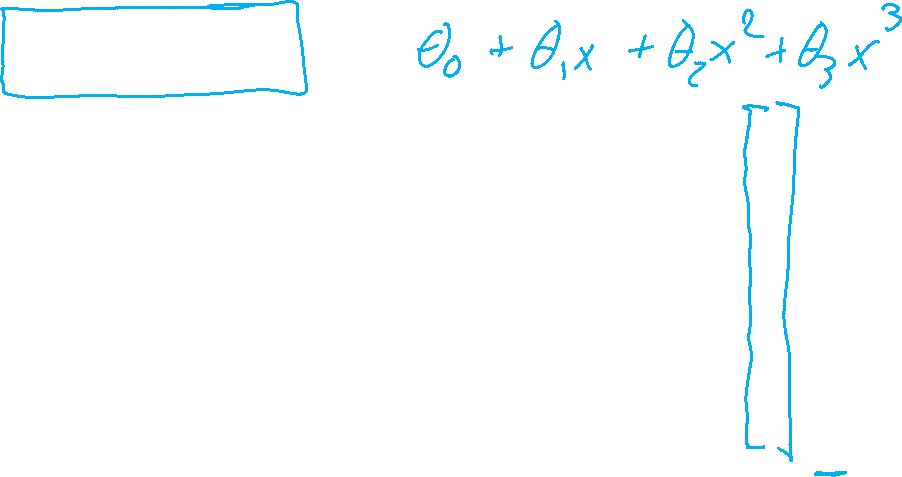 θ₀ + θ₁x + θ₂x² + θ₃x³